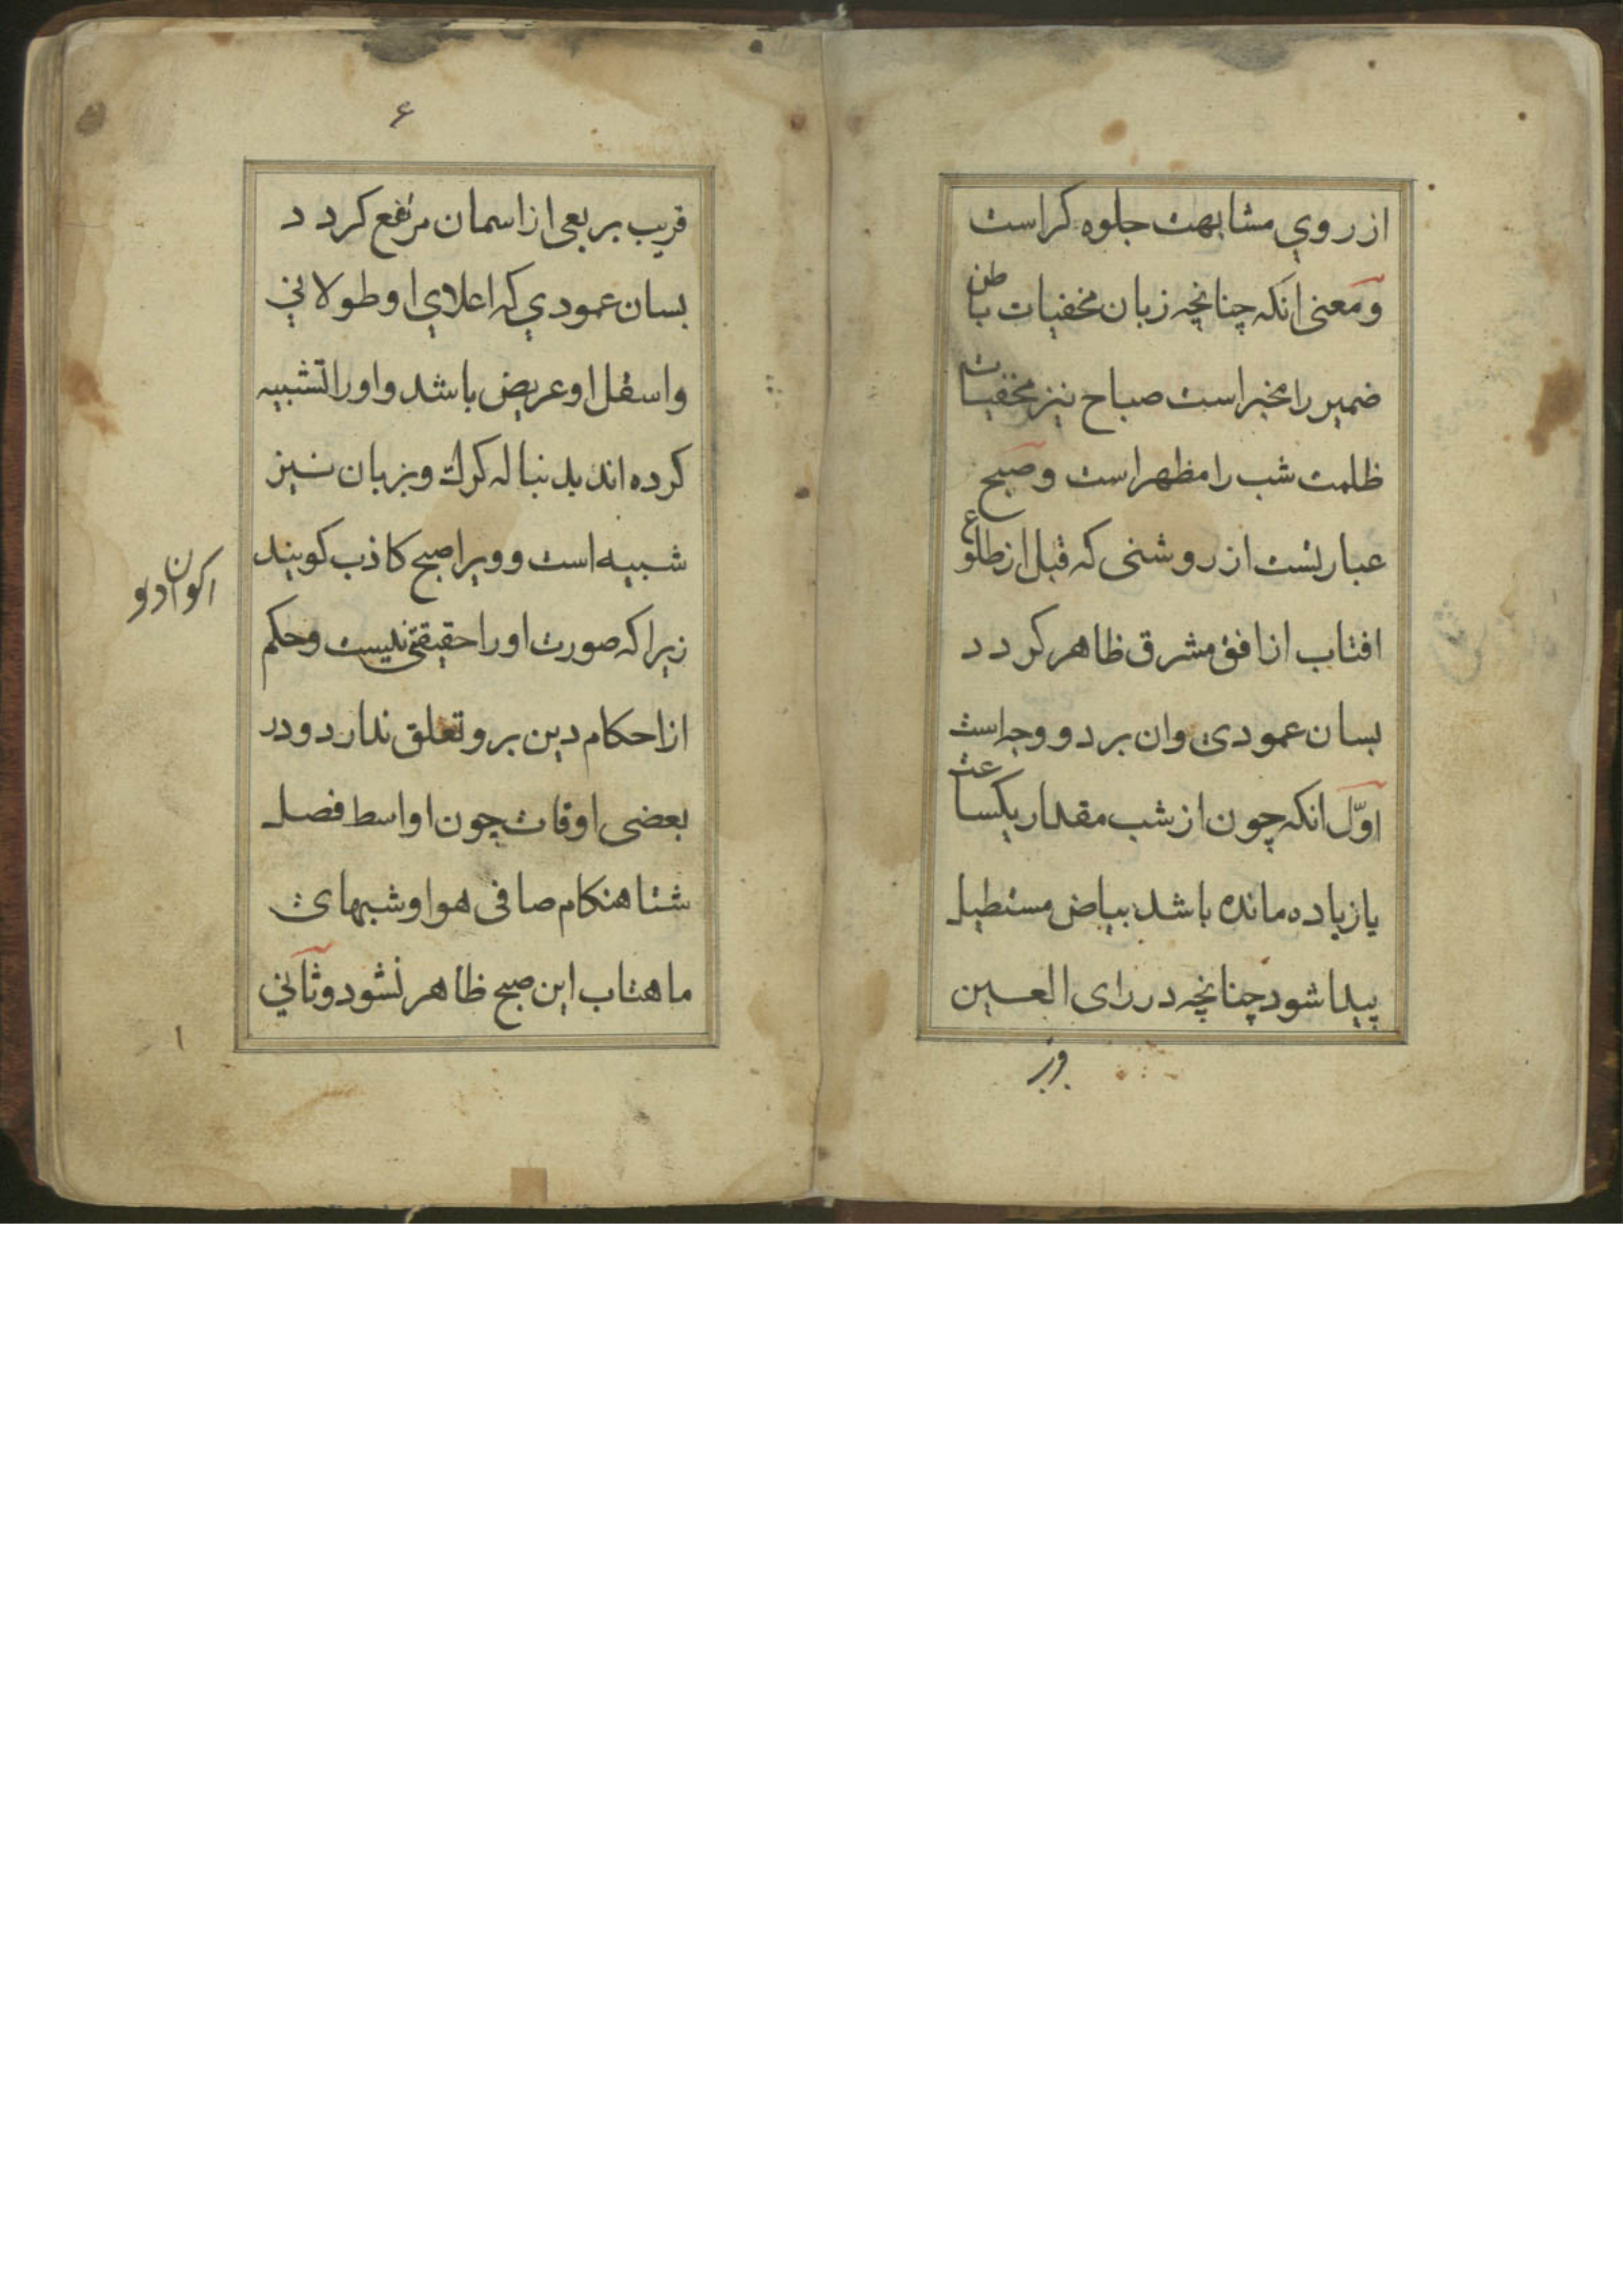 از روي مشابهت جلوه کر است
و معنی انکه چنانچه زبان مخفیات باطن
ضمیر را مخبر است صباح نیز مخفیات
ظلمت شب را مظهر است و صبح
عبارتست از روشنی که قبل از طلوع
افتاب از افق مشرق ظاهر کردد
بسان عمودی و ان بر دو وجه است
اوّل انکه چون از شب مقدار یکساعت
یا زیاده مانده باشد بیاض مستطیل
پیدا شود چنانچه در رای العین
۶
قریب بربعی از اسمان مرتفع کردد
بسان عمودي که اعلاي او طولاني
و اسفل او عریض باشد و او را تشبیه
کرده اند بدنباله کرك و بزبان نیز
شبیه است و ویرا صبح کاذب کویند
زیرا که صورت او را حقیقتی نیست و حکم
از احکام دین برو تعلق ندارد و در
بعضی اوقات چون اواسط فصل
شتا هنکام صافی هوا و شبهای
ماهتاب این صبح ظاهر نشود و ثاني